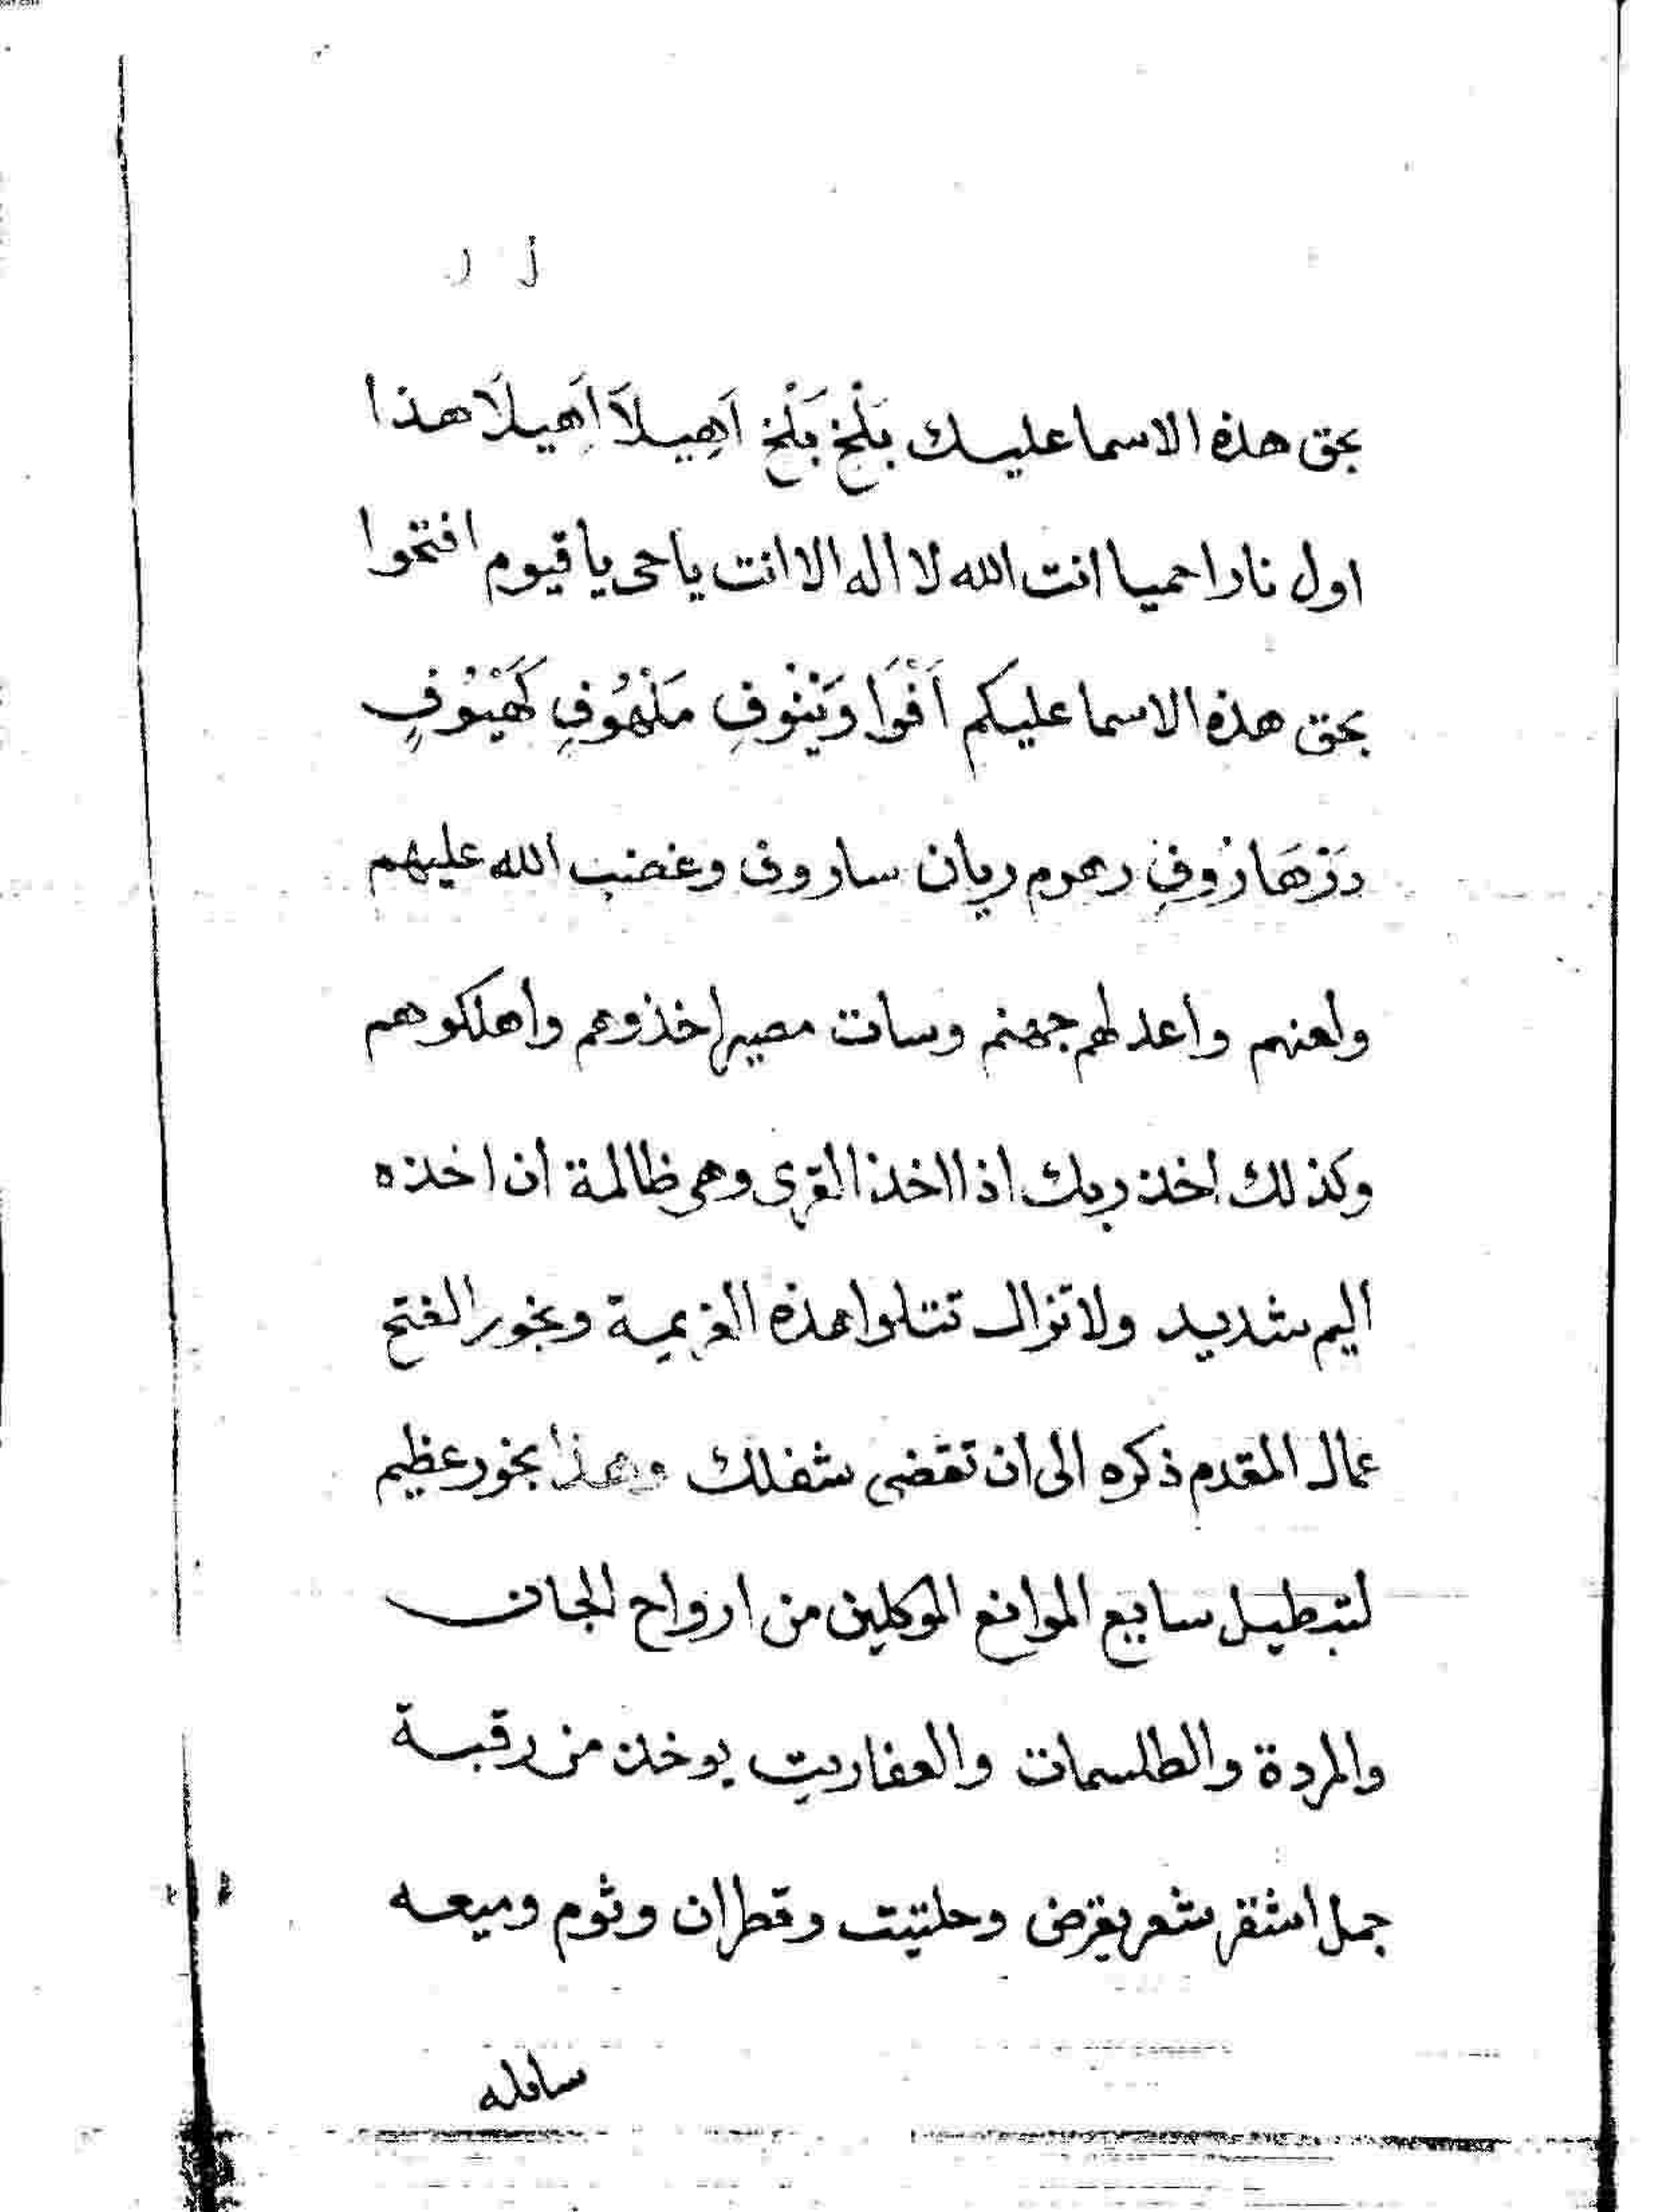 بحق هذه الاسما عليك بَلْخٍ بَلْخٍ اَهِيلاً اَهِيلاً هذا
اول نارا حميا انت الله لا اله الا انت ياحى ياقيوم افتحوا
بحق هذه الاسما عليكم اَفْوَا وَنينُوفٍ مَلْهُوفٍ كَهْيُوفٍ
رهوم ريان ساروف وغضب الله عليهم
ولعنهم واعد لهم جهنم وسات مصيرا خذوهم واهلكوهم
وكذلك اخذ ربك اذا اخذ القرى وهى ظالمة ان اخذه
اليم شديد ولا تزال تتلوا هذه العزيمة وبخور الفتح
عمال المقدم ذكره الى ان تقضى شغلك وهذا بخور عظيم
لتبطيل سايع الموانع الموكلين من ارواح الجان
والمردة والطلسمات والعفاريت يوخذ من رقبة
جمل اشقر شعر يقرض وحلتيت وقطران وثوم وميعه
سايله